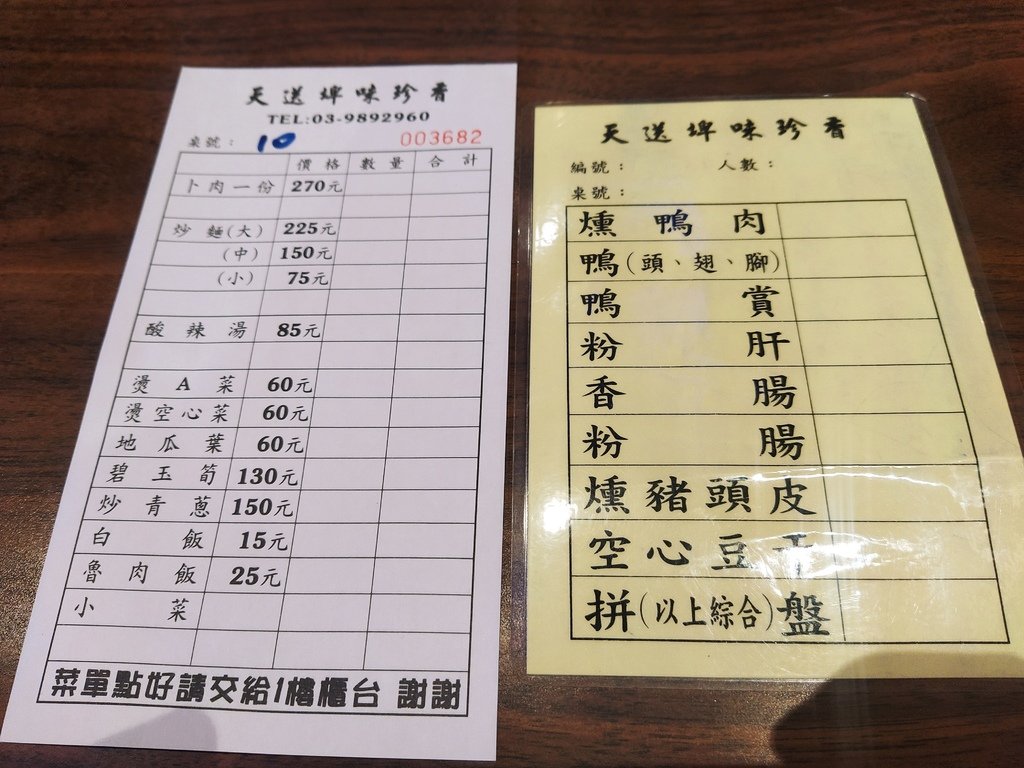 天送埤味珍香
TEL:03-9892960
桌號： 10 003682
價格 數量 合計
卜肉一份 270元
炒麵(大) 225元
(中) 150元
(小) 75元
酸辣湯 85元
燙A菜 60元
燙空心菜 60元
地瓜葉 60元
碧玉筍 130元
炒青蔥 150元
白飯 15元
魯肉飯 25元
小菜
菜單點好請交給1樓櫃台 謝謝
天送埤味珍香
編號： 人數：
桌號：
燻鴨肉
鴨(頭、翅、腳)
鴨賞
粉肝
香腸
粉腸
燻豬頭皮
空心豆干
拼(以上綜合)盤